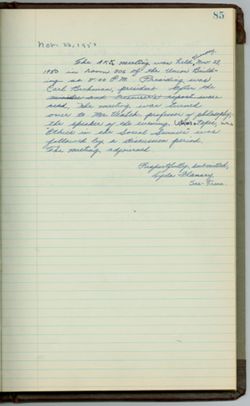 85
Nov. 28, 1950
The AKD meeting was held, Nov. 28,
1950 in room 305 of the Union Build-
ing at 8:00 P.M. Presiding was
Carl Beckman, president. After the
minutes and treasurer's report were
read the meeting was turned
over to Mr. professor of philosophy,
the speaker of the evening. topic, was
Ethics in the Social Sciences was
followed by a discussion period.
The meeting adjourned
Respectfully submitted,
Lyda
Sec-Treas.